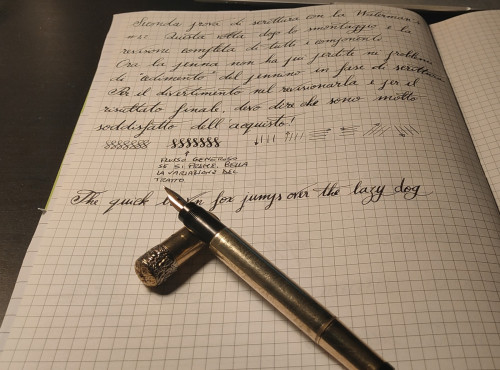 Seconda prova di scrittura con la Waterman's
Questa volta dopo lo smontaggio e la
revisione completa di tutti i componenti.
Ora la penna non ha più perdite né problemi
di "cedimento" del pennino in fase di scrittura.
Per il divertimento nel revisionarla e per il
risultato finale, devo dire che sono molto
soddisfatto dell'acquisto!
FLUSSO GENEROSO
SE SI PREME, BELLA
LA VARIAZIONE DEL
TRATTO
The quick fox jumps over the lazy dog